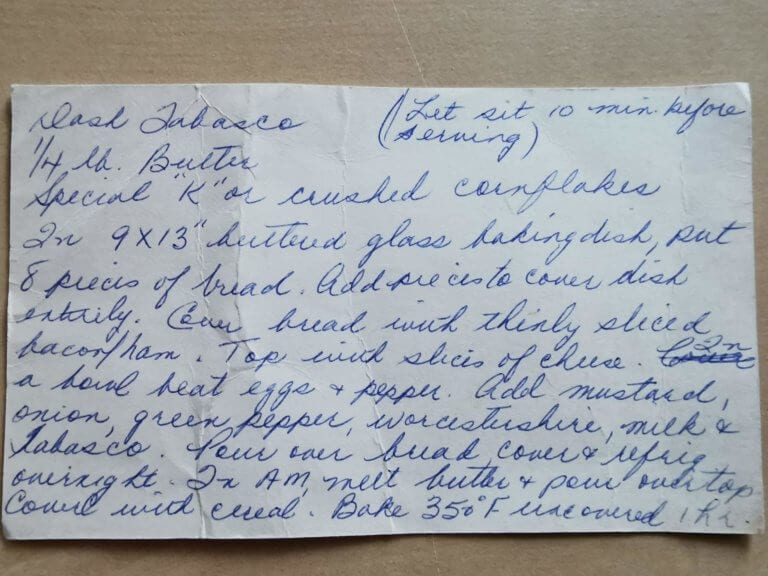 Dash Tabasco
(Let sit 10 min. before
serving)
1/4 lb. Butter
Special "K" or crushed cornflakes
In 9X13" buttered glass baking dish, put
8 pieces of bread. Add pieces to cover dish
entirely. Cover bread with thinly sliced
bacon/ham. Top with slices of cheese. In
a bowl beat eggs & pepper. Add mustard,
onion, green pepper, worcestershire, milk &
Tabasco. Pour over bread, cover & refrig
overnight. In AM, melt butter & pour over top
Cover with cereal. Bake 350°F uncovered 1 hr.